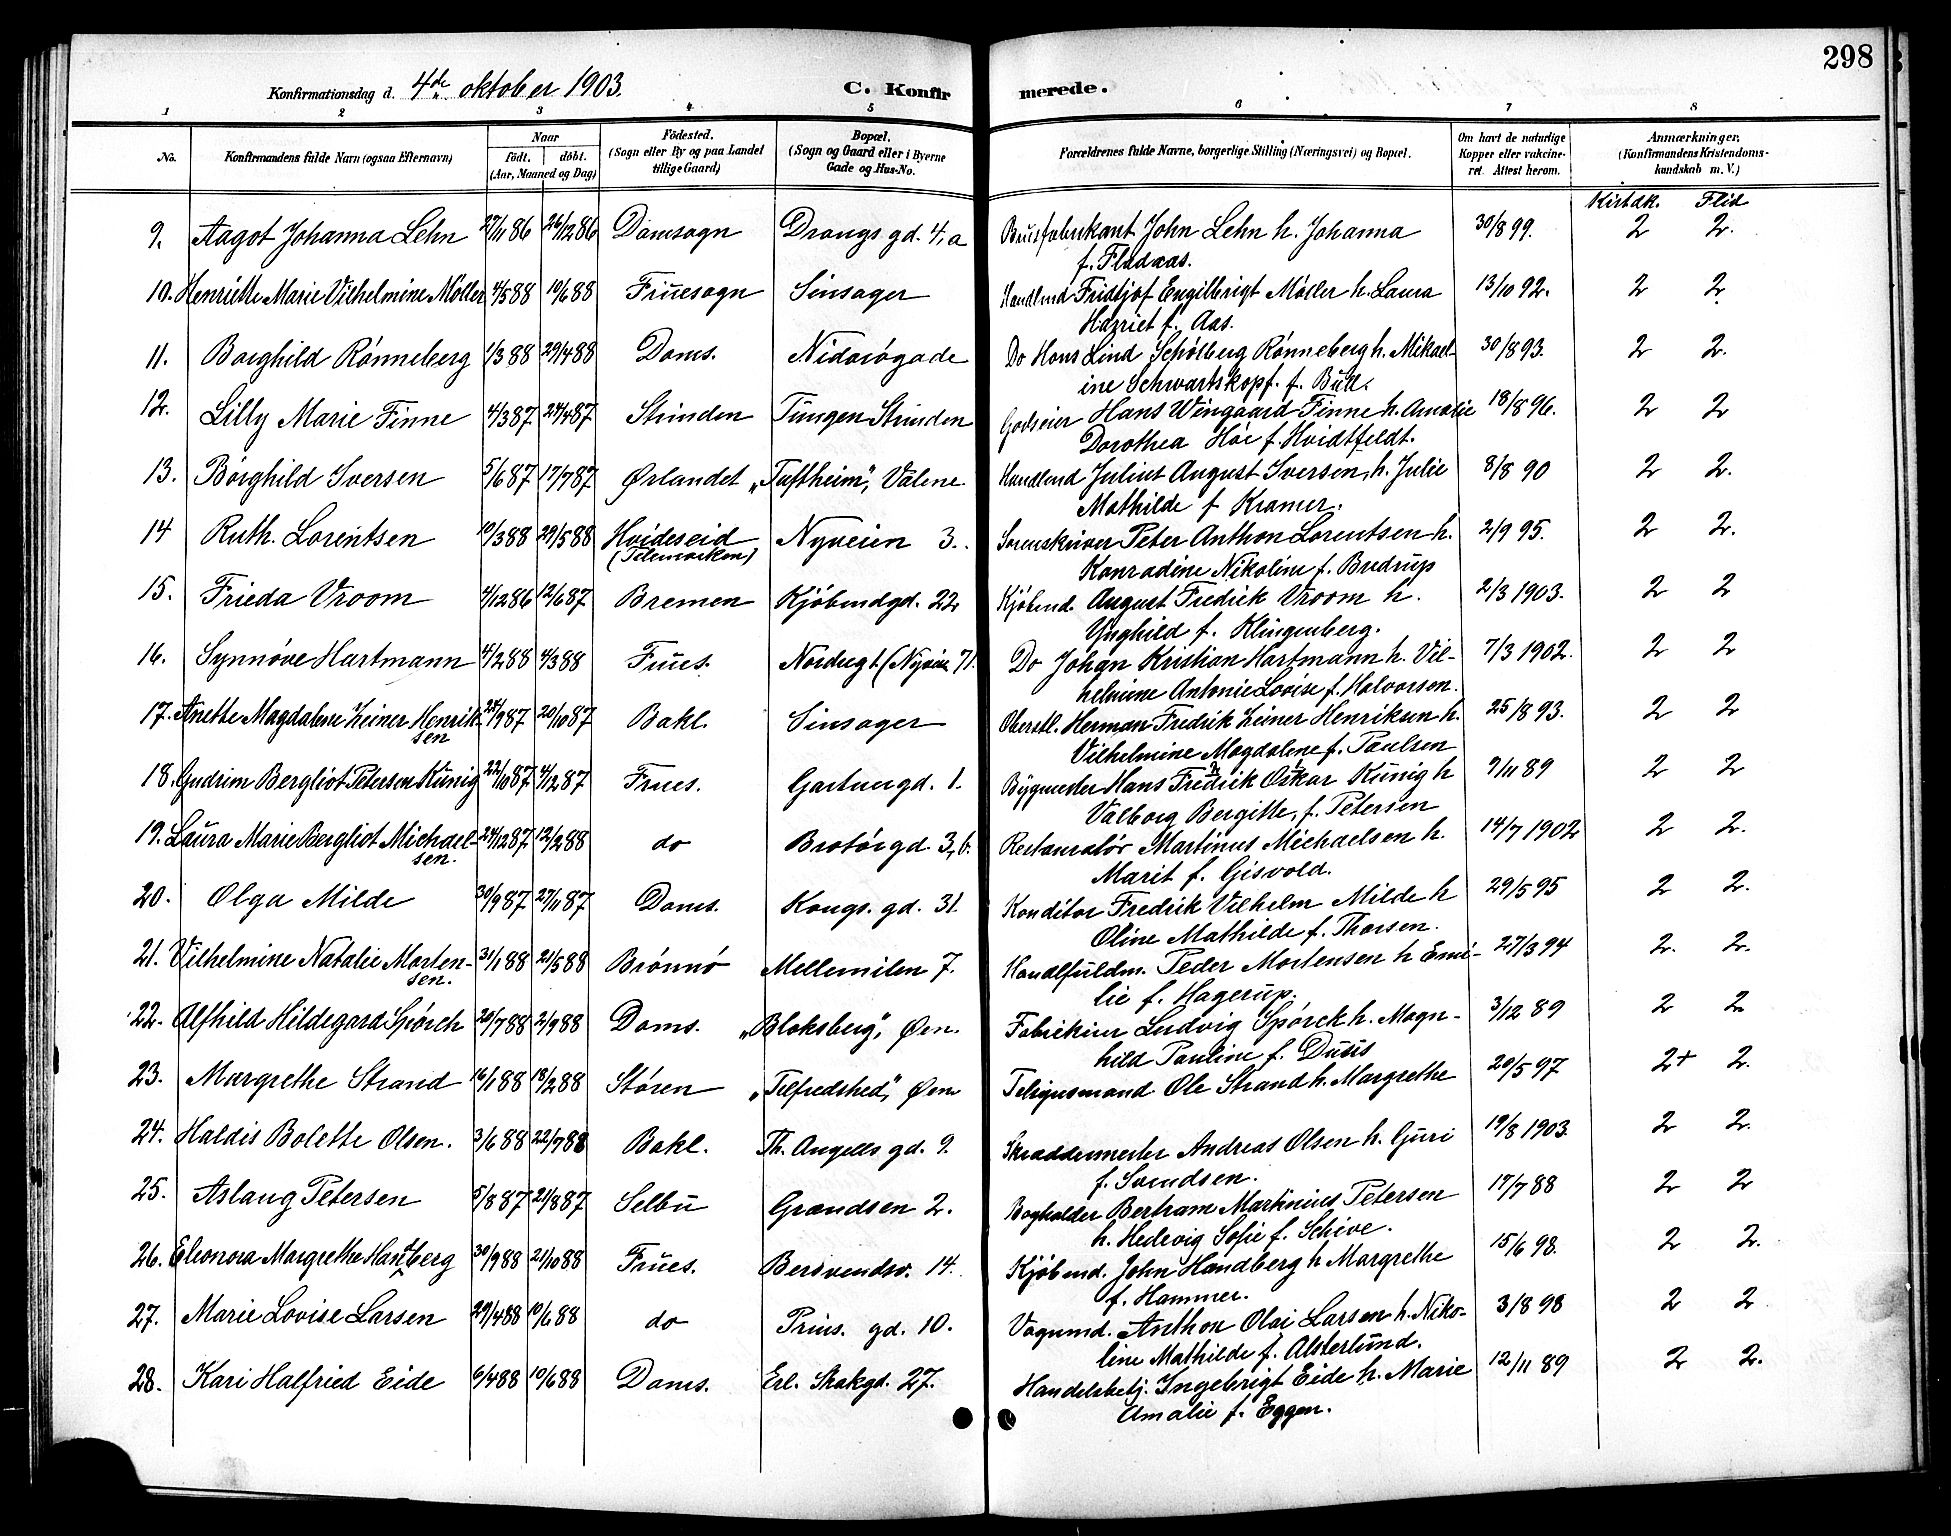 298
Konfirmationsdag d. 4de oktober 1903.
C. Konfirmerede.
1 2 3 4 5 6 7 8
No. Konfirmandens fulde Navn (ogsaa Efternavn) Naar født. døbt. (Aar, Maaned og Dag) Fødested. (Sogn eller By og paa Landet tillige Gaard) Bopæl. (Sogn og Gaard eller i Byerne Gade og Hus-No. Forældrenes fulde Navne, borgerlige Stilling (Næringsvei) og Bopæl. Om havt de naturlige Kopper eller vakcineret. Attest herom. Anmærkninger. (Konfirmandens Kristendomskundskab m. V.)
Kirstdk. Flid
9. Aagot Johanna Lehn 27/11 86 26/12 86 Domsogn Drongs gd. 4, a John Lehn h. Johanna 30/8 99. 2 2.
f. Fladaas.
10. Henriette Marie Vilhelmine Møller 4/5 88 10/6 88 Fruesogn Sinsager Handlend Fridtjof Engilbrigt Møller h. Laura 13/10 92. 2 2
Harriet f. Aas.
11. Borghild Rønneberg 1/3 88 29/4 88 Doms. Nidarøgade Do Hans Lind Schølberg Rønneberg h. Mikael- 30/8 93. 2 2.
ine Schwartskopf. f. Bull.
12. Lilly Marie Finne 4/3 87 24/4 87 Strinden Tungen Strinden Godseier Hans Wingaard Finne h. Amalie 18/8 96. 2 2
Dorothea Høe f. Hvidtfeldt.
13. Borghild Iversen 5/6 87 17/7 87 Ørlandet "Tuftheim", Valene Handlend Julius August Iversen, h. Julie 8/8 90 2 2.
Mathilde f Kramer.
14 Ruth. Lorentsen 10/3 88 29/5 88 Hvideseid (Telemarken) Nyveien 3. Sorenskriver Peter Anthon Lorentsen h. 2/9 95. 2 2.
Konradine Nikoline f. Budrup
15. Frieda Vroom 4/12 86 12/6 87 Bremen Kjøbmdgd. 22 Kjøbmd. August Fredrik Vroom h. 2/3 1903. 2 2
Ynghild f. Klingenberg.
16. Synnøve Hartmann 4/2 88 4/3 88 Frues. Nordregt (Nyveien 71. Do Johan Kristian Hartmann h. Vil- 7/3 1902. 2 2
helmine Antonie Lovise f. Halvorsen.
17. Anette Magdalene Zeiner Henriksen 25/9 87 20/10 87 Bakl. Sinsager Oberstl. Herman Fredrik Zeiner Henriksen h. 25/8 93. 2 2
Vilhelmine Magdalene f. Paulsen
18. Gudrun Bergliot Petersen Kunig 22/10 87 4/12 87 Frues. Gartnergd. 1. Bygmester Hans Fredrik Oskar Kunig h 9/11 89 2 2
Valborg Bergitte, f. Petersen
19. Laura Marie Bergliot Michaelsen. 24/12 87 12/2 88 do Bratørgd. 3, b. Restauratør Martinus Michaelsen h. 14/7 1902 2 2.
Marit f. Gisvold.
20. Olga Milde 30/9 87 27/11 87 Doms. Kongs. gd. 31. Konditor Fredrik Vilhelm Milde h 29/5 95 2 2.
Oline Mathilde f. Thorsen.
21. Vilhelmine Natalie Mortensen. 31/1 88 21/5 88 Brønnø Mellemilen 7. Handlfuldm. Peder Mortensen h Emi- 27/3 94 2. 2.
lie f. Hagerup.
22. Alfhild Hildegard Spørck 20/7 88 2/9 88 Doms. "Bloksberg", Øen. Fabrikeier Ludvig Spørck h. Magn- 3/12 89 2 2
hild Pauline f. Dusis
23. Margrethe Strand 16/1 88 18/2 88 Støren "Tilfredshed", Øen Teligusmand Ole Strand h. Margrethe 20/5 97 2+ 2.
24. Haldis Bolette Olsen. 3/6 88 22/7 88 Bakl. Th. Angells gd. 9. Skræddermester Andreas Olsen h. Guri 19/8 1903. 2 2.
f. Svendsen.
25. Aslaug Petersen 5/8 87 21/8 87 Selbu Grændsen 2. Bogholder Bertram Martinius Petersen 17/7 88 2 2
h. Hedevig Sofie f. Schive.
26. Eleonora Margrethe Hantberg 30/9 88 21/10 88 Frues. Bersvendsv. 14. Kjøbmd. John Handberg h Margrethe 15/6 98. 2 2.
f. Hammer.
27. Marie Lovise Larsen 29/4 88 10/6 88 do Prins. gd. 10. Vognmd. Anthon Olai Larsen h. Niko- 3/8 98 2 2
line Mathilde f. Alsterlund.
28. Kari Halfried Eide 6/4 88 10/6 88 Doms. Erl. Skakgd. 27. Handelsbetj. Ingebrigt Eide h. Marie 12/11 89 2 2.
Amalie f. Eggen.